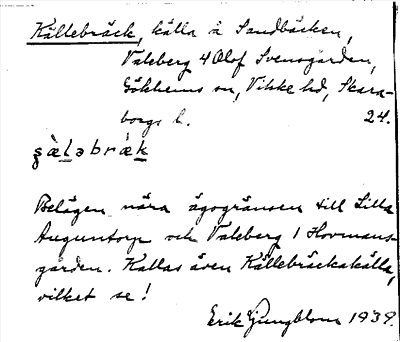 Källebräck, källa å Sandbäcken,
Valeberg 4 Olof Svensgården,
Gökhems sn, Vilske hd, Skara-
borgs l. 24.
Belägen nära ägogränsen till Lilla
Auguntorp och Valeberg 1 Hovmans-
gården. Kallas även Källebräckakälla,
vilket se!
Erik Ljungblom 1939.